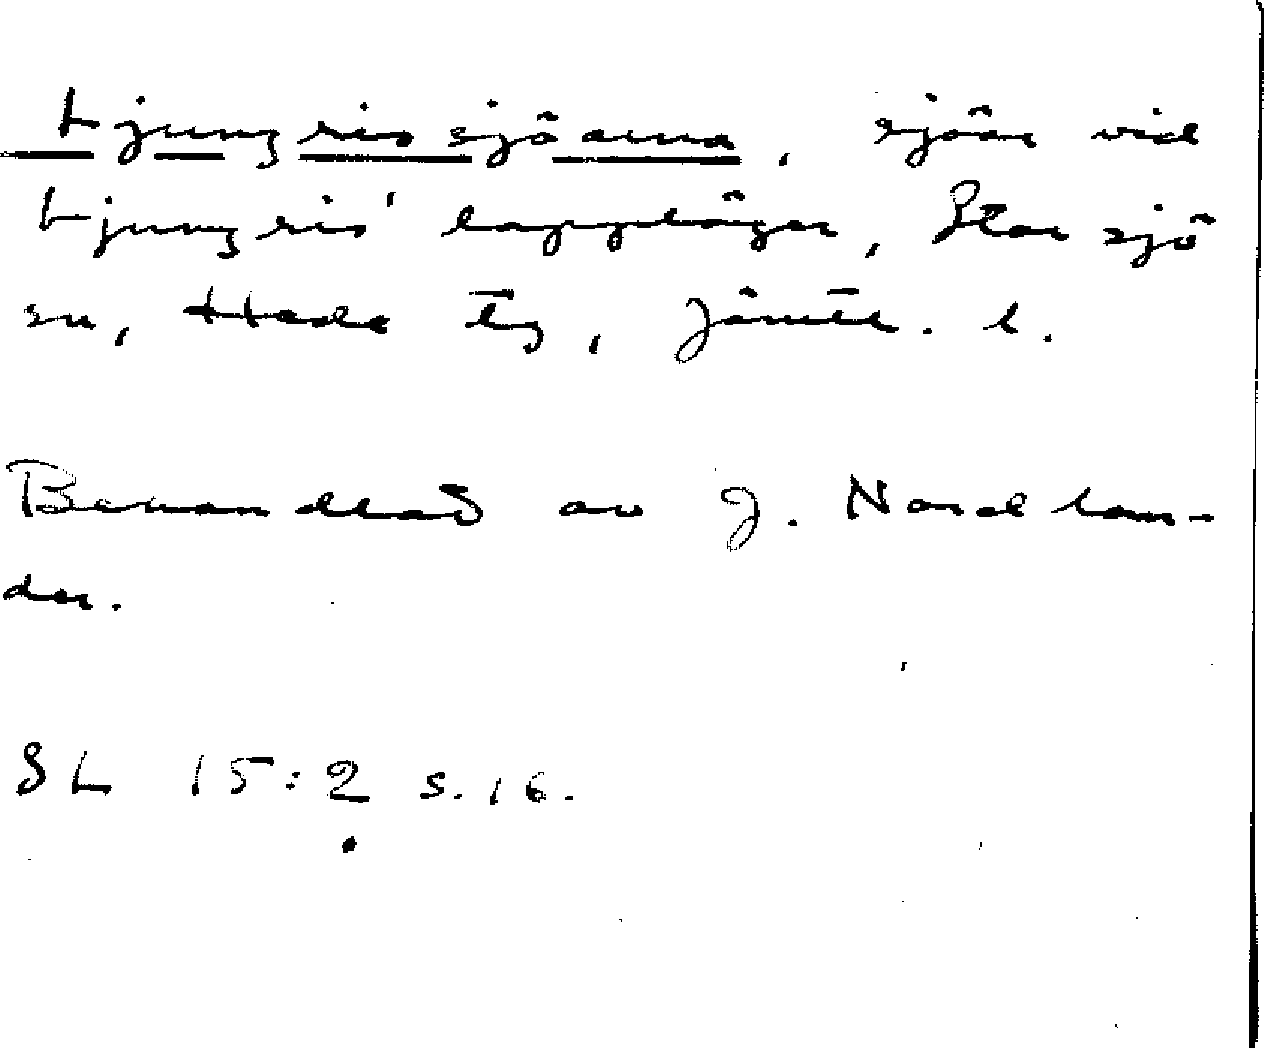 Ljungrissjöarna, sjöar vid
Ljungris' lappläger, Storsjö
sn, Hede tg, Jämtl. l.
Behandlad av J. Nordlan-
der.
SL 15:2 s. 16.